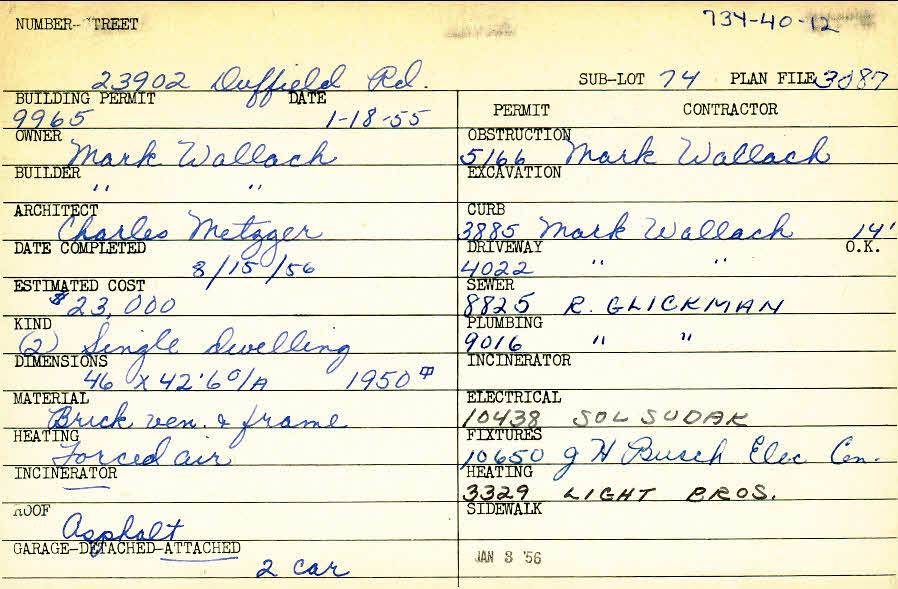 734-40-12
NUMBER- STREET
23902 Duffield Rd.
SUB-LOT 74 PLAN FILE 3087
BUILDING PERMIT DATE
9965 1-18-55
PERMIT CONTRACTOR
OWNER
Mark Wallach
OBSTRUCTION
5166 Mark Wallach
BUILDER
" "
EXCAVATION
ARCHITECT
Charles Metzger
CURB
3885 Mark Wallach 14'
DATE COMPLETED
8/15/56
DRIVEWAY O.K.
4022 " "
ESTIMATED COST
$23,000
SEWER
8825 R. GLICKMAN
KIND
(2) Single dwelling
PLUMBING
9016 " "
DIMENSIONS
46 x 42'6 o/A 1950
INCINERATOR
MATERIAL
Brick ven. & frame
ELECTRICAL
10438 SOL SUDAK
HEATING
Forced air
FIXTURES
10650 g H Busch Elec Cen.
INCINERATOR
HEATING
3329 LIGHT BROS.
ROOF
Asphalt
SIDEWALK
GARAGE-DETACHED-ATTACHED
2 car
JAN 3 '56